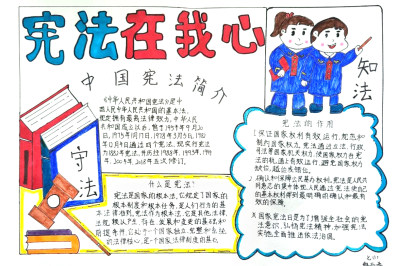 宪法在我心
中国宪法简介
《中华人民共和国宪法》是中
华人民共和国的基本法,
规定拥有最高法律效力。中华人
民共和国成立以来,曾于1954年9月20
日、1975年1月17日、1978年3月5日、1982
年12月4日通过四个宪法,现行宪法
为1982年宪法,并历经1988年、1993年、1999
年、2004年、2018年五次修订。
知法
守法
什么是宪法?
宪法是国家的根本法,它规定了国家的
根本制度和根本任务,是人们行为的基
本法律准则。宪法作为根本法,它是其他法律、
法规赖以产生、存在、发展和变更的基础和
前提条件,它处于一个国家独立、完整和系统
的法律核心,是一个国家法律制度的基石。
宪法的作用
1.保证国家权利有效运行,规范和
制约国家权力。宪法通过立法、行政、
司法等国家机关权力,使国家权力在宪
法的轨道上有效运行,避免国家权力
缺位、越位或错位。
2.确认和保障公民基本权利。宪法是人民利
益意志的集中体现,人民通过宪法使自己
的基本权利得到最明确的确认和最有效
的保障。
3.国家宪法日是为了增强全社会的宪
法意识,弘扬宪法精神,加强宪法
实施,全面推进依法治国。